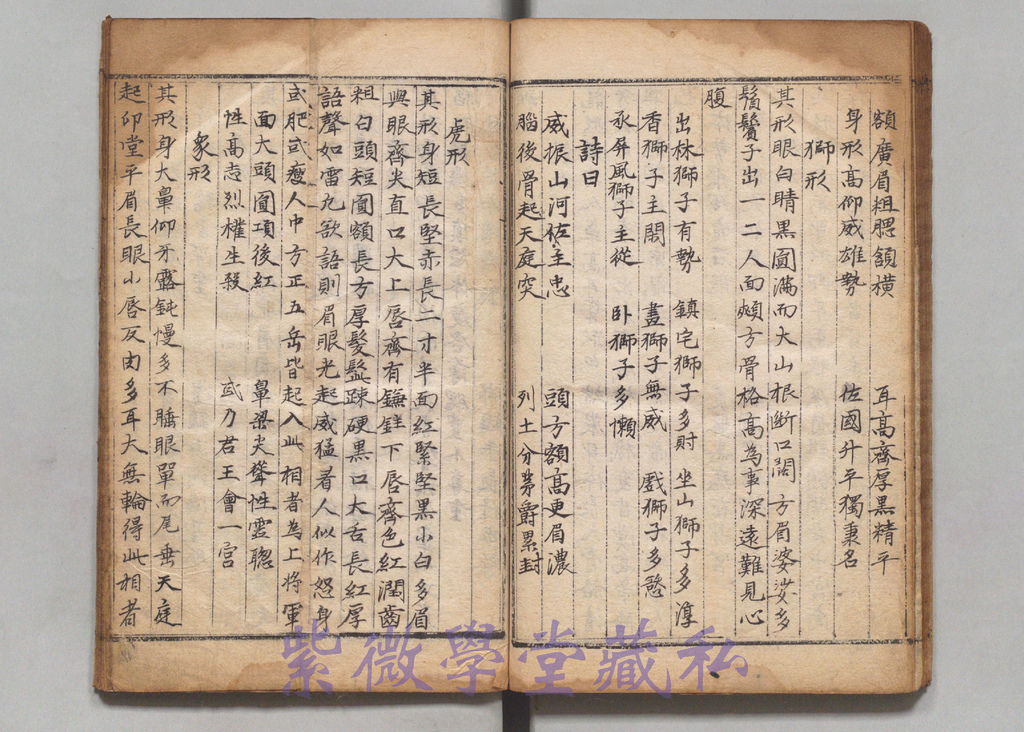 額廣眉粗腮頷橫 耳高齊厚黑精平
身形高仰威雄勢 佐國升平獨秉名
獅形
其形眼白睛黑圓滿而大山根斷口闊方眉婆娑多
鬚鬢子出一二人面頗方骨格高為事深遠難見心
腹
出林獅子有勢 鎮宅獅子多財 坐山獅子多淳
香獅子主閑 畫獅子無威 戲獅子多愁
承屏風獅子主從 卧獅子多懶
詩曰
威振山河佐主忠 頭方額高更眉濃
腦後骨起天庭突 列土分茅爵累封
虎形
其形身短長堅赤長二寸半面紅緊堅黑小白多眉
興眼齊尖直口大上唇齊有鐮鉎下唇齊色紅潤齒
粗白頭短圓額長方厚髮髭疎硬黑口大舌長紅厚
語聲如雷九欲語則眉眼光起威猛看人似作怒身
或肥或瘦人中方正五岳皆起入此相者為上將軍
面大頭圓項後紅 鼻梁尖聳性靈聰
性高志烈權生殺 武乃君王會一宮
象形
其形身大鼻仰牙露鈍慢多不睡眼單而尾垂天庭
起印堂平眉長眼小唇反肉多耳大無輪得此相者
紫微學堂藏私